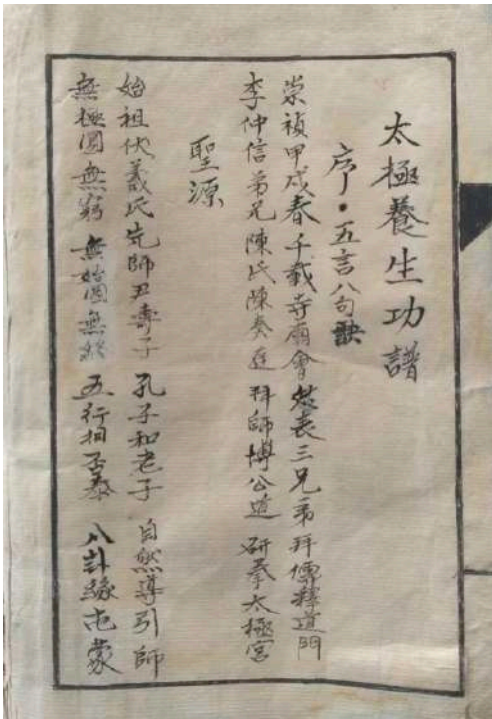 太極養生功譜
序·五言八句訣
崇禎甲戍春 千載寺廟會 慾表三兄弟 拜儒釋道門
李仲信弟兄 陳氏陳奏庭 拜師博公道 研拳太極宮
聖源
始祖伏羲氏 先師尹壽子 孔子和老子 自然導引師
無極圓無窮 無始圓無終 五行相否泰 八卦緣屯蒙